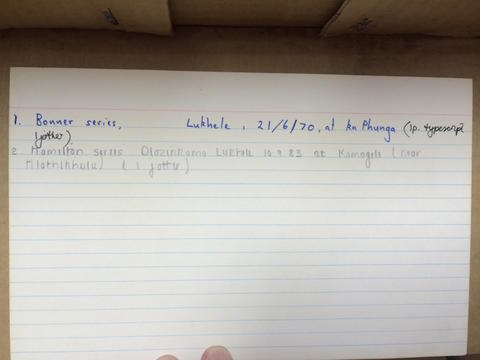 1. Bonner series, Lukhele, 21/6/70, at ka Phunga (1p. typescript
jotter).
2 Hamilton series Dlozinkama Lukhele 10.9.83 at Kamageli (near
Hlathikhulu) (1 jotter)